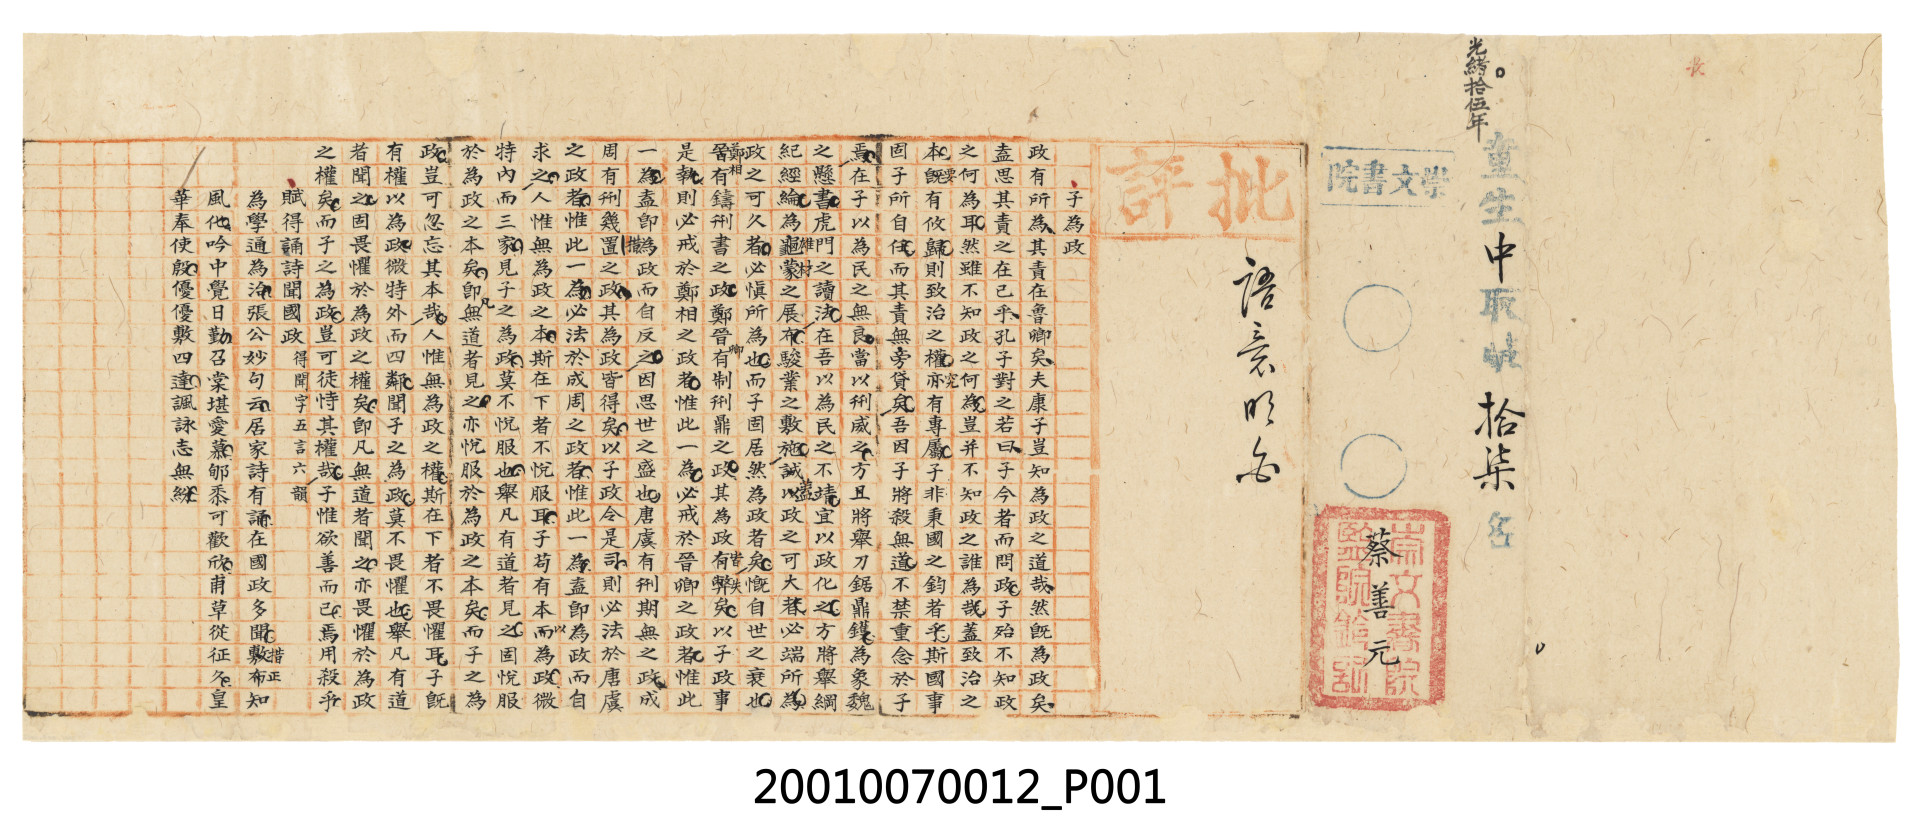 光緒拾伍年
童生中取 拾柒名
崇文書院
蔡善元
崇文書院監院鈐記
批評
語意明白
子為政
政有所為其責在魯卿矣夫康子豈知為政之道哉然既為政矣
盍思其責之在己乎孔子對之若曰子今者而問政子殆不知政
之何為耳然雖不知政之何為豈并不知政之誰為哉蓋致治之
本既有攸歸則致治之權亦有專屬子非秉國之鈞者乎斯國事
固子所自任而其責無旁貸矣吾因子將殺無道不禁重念於子
焉在子以為民之無良當以刑威之方且將舉刀鋸鼎鑊為象魏
之懸書虎門之讀法在吾以為民之不靖宜以政化之方將舉綱
紀經綸為區蒙之展布駿業之敷施誠以政之可大者必端所為
政之可久者必慎所為也而子固居然為政者矣慨自世之衰也
晉有鑄刑書之政鄭晉有制刑鼎之政其為政有弊矣以子政事
是執則必戒於鄭相之政者惟此一為必戒於晉卿之政者惟此
一為盍即為政而自反之因思世之盛也唐虞有刑期無之政成
周有刑幾置之政其為政皆得矣以子政令是司則必法於唐虞
之政者惟此一為必法於成周之政者惟此一為盍即為政而自
求之人惟無為政之本斯在下者不悅服耳子苟有本而為政微
特內而三家見子之為政莫不悅服也舉凡有道者見之固悅服
於為政之本矣即無道者見之亦悅服於為政之本矣而子之為
政豈可忽忘其本哉人惟無為政之權斯在下者不畏懼耳子既
有權以為政微特外而四鄰聞子之為政莫不畏懼也舉凡有道
者聞之固畏懼於為政之權矣即凡無道者聞之亦畏懼於為政
之權矣而子之為政豈可徒恃其權哉子惟欲善而已焉用殺乎
賦得誦詩聞國政 得聞字五言六韻
為學通為治張公妙句云居家詩有誦在國政多聞敷布知
風化吟中覺日勤召棠堪愛慕郇黍可歡欣甫草從征久皇
華奉使殷優優敷四達諷詠志無紛
20010070012_P001